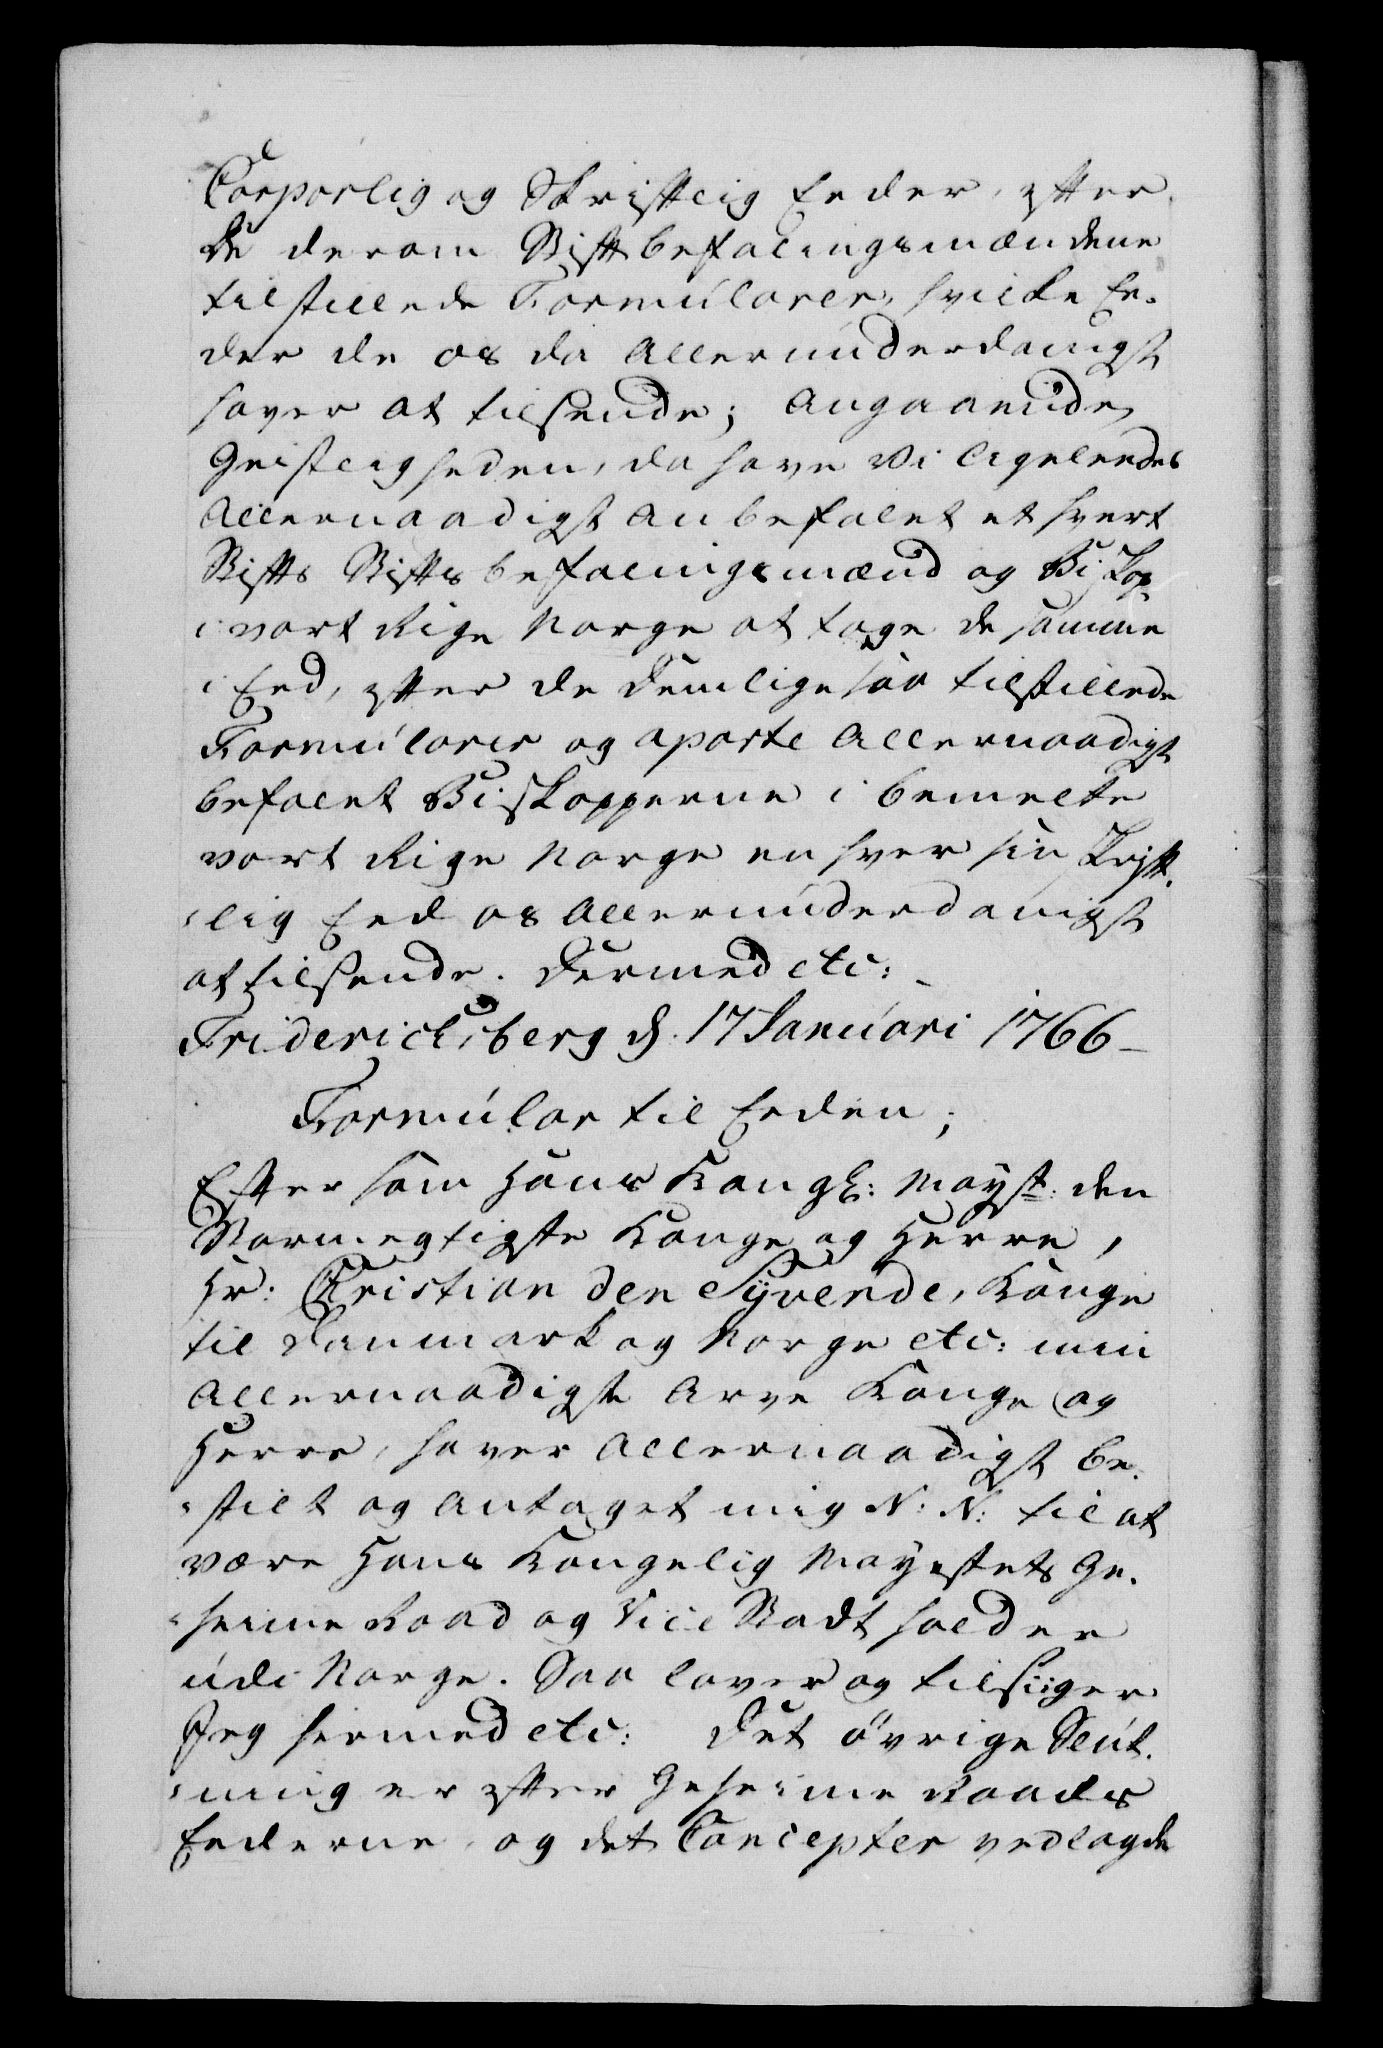 Corporlig og Skriftlig Eeder, efter
De derom Stiftbefalingsmændene
tilstillede Formularer, hvilke Ee-
der de os da Allerunderdanigst
haver at tilsende; Angaaende
Geistligheden, da have Vi ligeledes
Allernaadigst anbefalet et hvert
Stifts Stiftsbefalingsmænd og Biskop
i vort Rige Norge at tage de samme
i Eed, efter de Dennem lige saa tilstillede
Formularer og aparte Allernaadigst
befalet Biskopperne i bemelte
vort Rige Norge en hver sin Skrift-
-lig Eed os Allerunderdanigst
at tilsende. Dermed etc:
Friderichsberg d. 17 Januari 1766 –
Formular til Eeden;
Eftersom Hans Kongl: Mayst: den
Stormegtigste Konge og Herre,
Hr: Christian den Syvende, Konge
til Danmark og Norge etc: min
Allernaadigste Arve Konge og
Herre, haver Allernaadigst be-
-stilt og Antaget mig N: N: til at
være Hans Kongelig Mayestets Ge-
-heime Raad og Vice Stadtholder
udi Norge. Saa lover og tilsiiger
Jeg hermed etc: Det øvrige Slut-
-ning er efter Geheime Raads
Eederne og det Concepter vedlagde